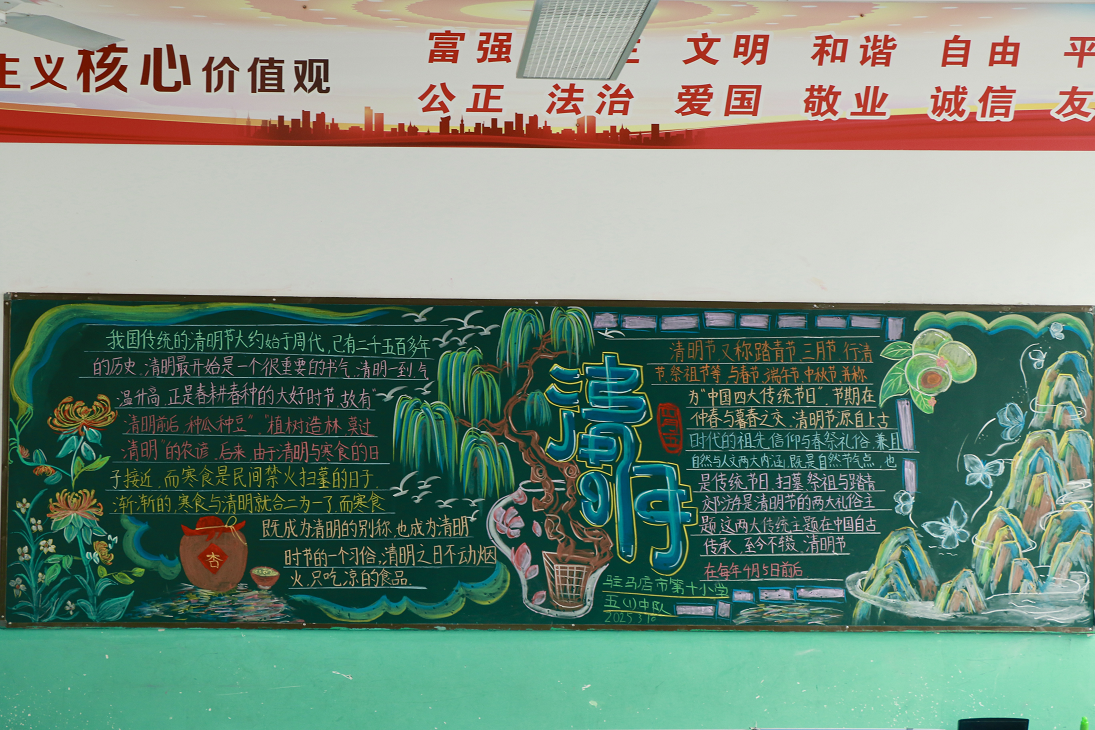 主义核心价值观
富强 主 文明 和谐 自由 平
公正 法治 爱国 敬业 诚信 友
我国传统的清明节大约始于周代,已有二千五百多年
的历史,清明最开始是一个很重要的节气,清明一到,气
温升高,正是春耕春种的大好时节,故有"
清明前后,种瓜种豆""植树造林,莫过
清明"的农谚,后来,由于清明与寒食的日
子接近,而寒食是民间禁火扫墓的日子
渐渐的,寒食与清明就合二为一了,而寒食
既成为清明的别称,也成为清明
时节的一个习俗,清明之日不动烟
火,只吃凉的食品.
杏
清明
清明节,又称踏青节,三月节,行清
节,祭祖节等,与春节,端午节,中秋节并称
为"中国四大传统节日",节期在
仲春与暮春之交,清明节源自上古
时代的祖先信仰与春祭礼俗,兼具
自然与人文两大内涵,既是自然节气点,也
是传统节日,扫墓祭祖与踏青
郊游是清明节的两大礼俗主
题,这两大传统主题在中国自古
传承,至今不辍,清明节
在每年4月5日前后
驻马店市第十小学
五(1)中队
2025.3.10